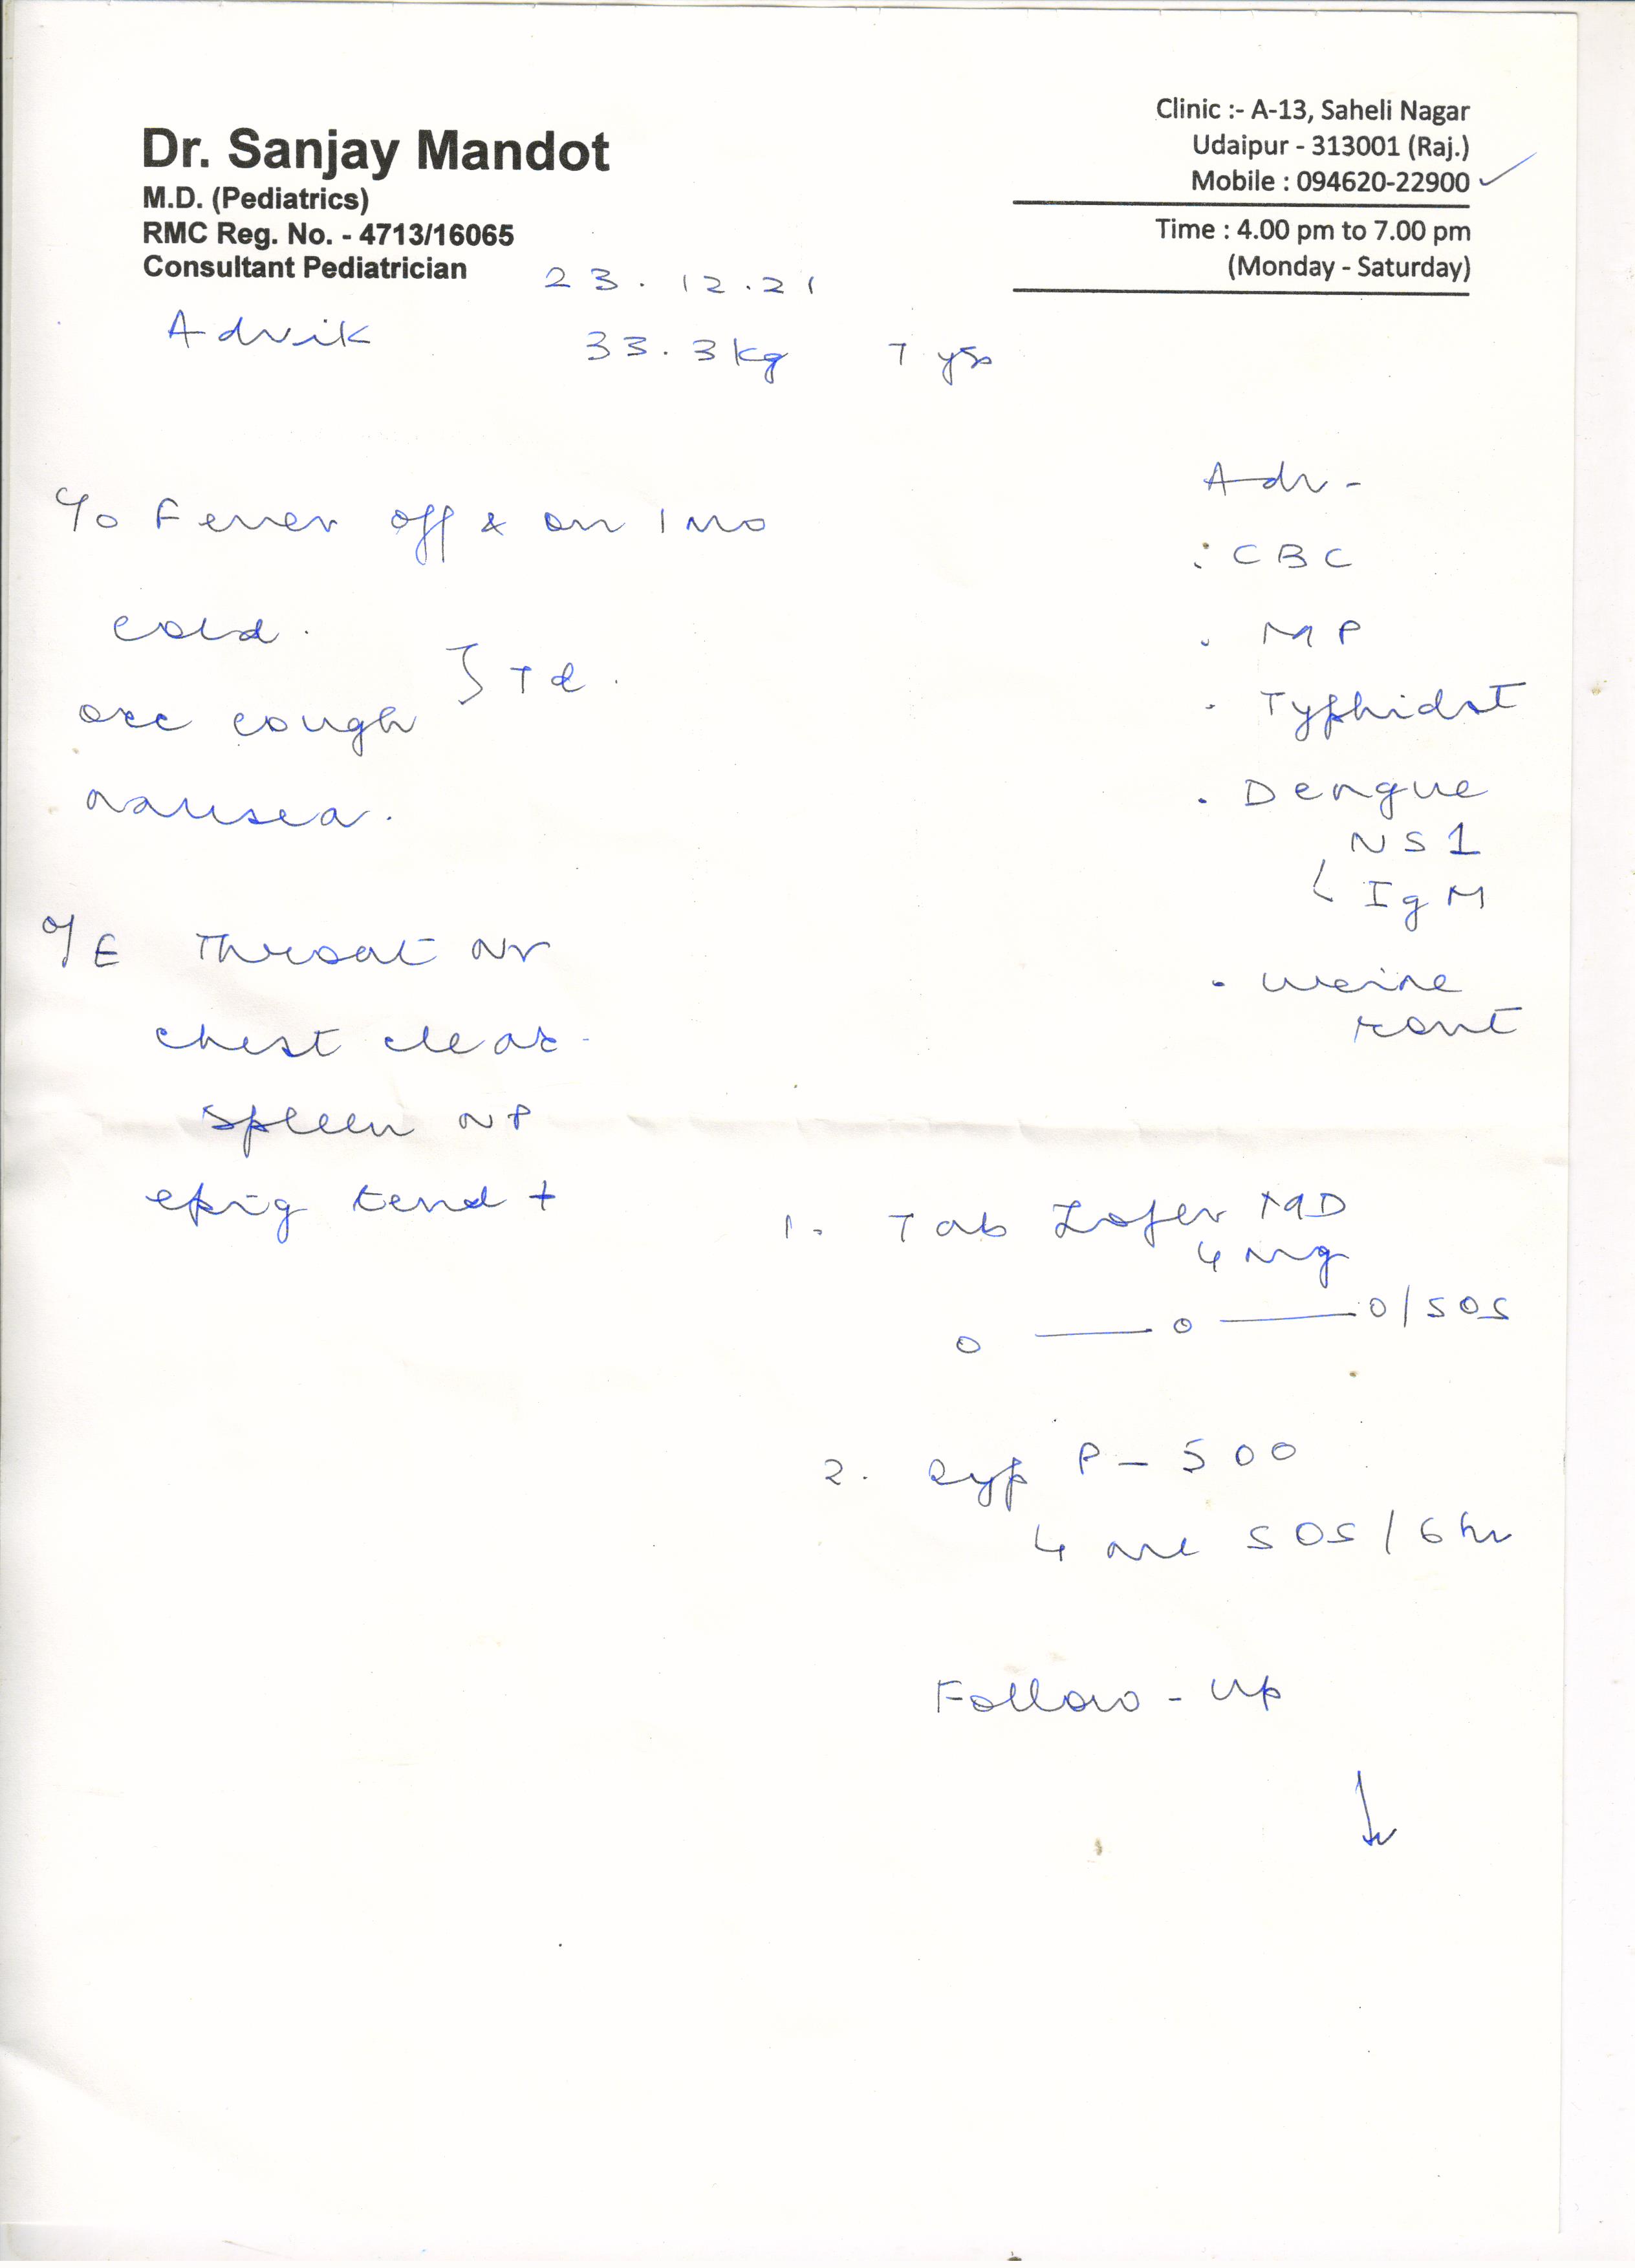 Dr. Sanjay Mandot
M.D. (Pediatrics)
RMC Reg. No. - 4713/16065
Consultant Pediatrician
Clinic :- A-13, Saheli Nagar
Udaipur - 313001 (Raj.)
Mobile : 094620-22900
Time : 4.00 pm to 7.00 pm
(Monday - Saturday)
23.12.21
Advik 33.3kg 7 yrs
C/o Fever off & on 1 mo
cold.
occ cough
nausea.
O/E Throat Nr
chest clear
Spleen NP
epig tend +
Adv -
CBC
MP
Typhidot
Dengue
NS1
IgM
Urine
1. Tab Zofer MD
4 mg
0 — 0 — 0/SOS
2. Syp P-500
4 SOS / 6 hr
Follow-up